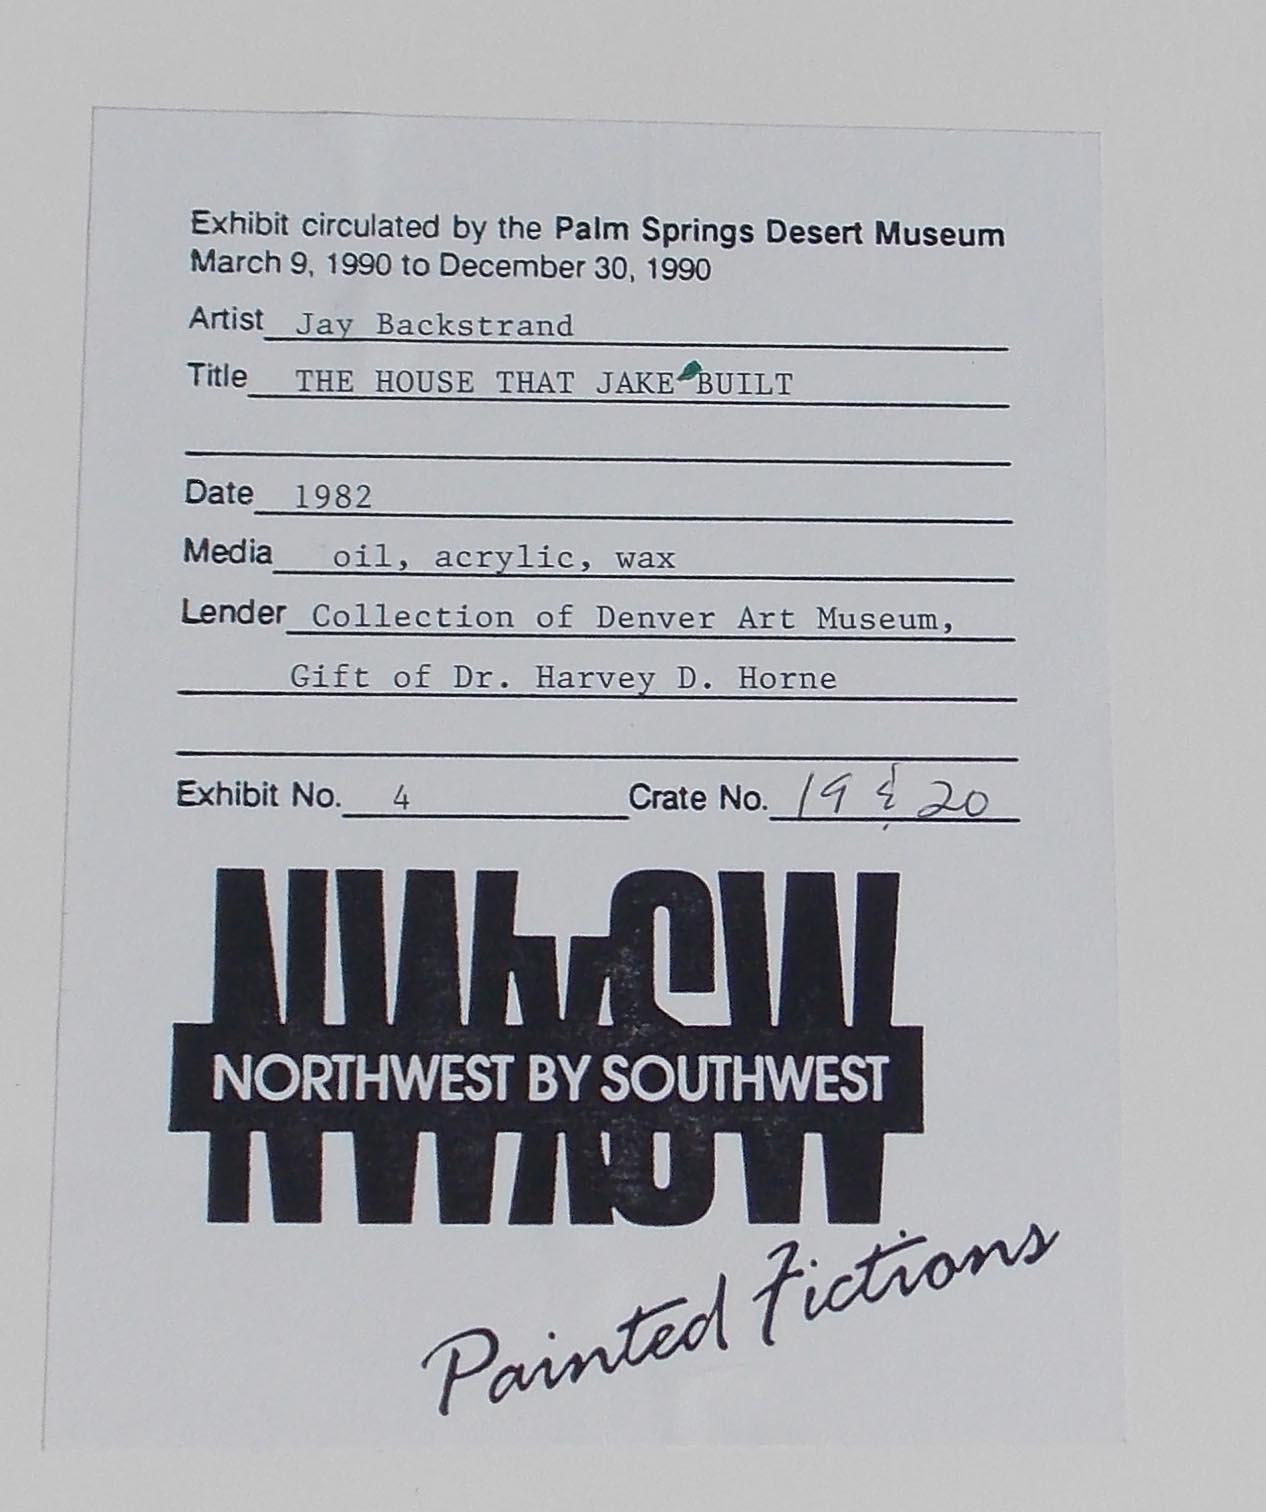 Exhibit circulated by the Palm Springs Desert Museum
March 9, 1990 to December 30, 1990
Artist Jay Backstrand
Title THE HOUSE THAT JAKE BUILT
Date 1982
Media oil, acrylic, wax
Lender Collection of Denver Art Museum,
Gift of Dr. Harvey D. Horne
Exhibit No. 4 Crate No. 19 & 20
NWXSW
NORTHWEST BY SOUTHWEST
Painted Fictions